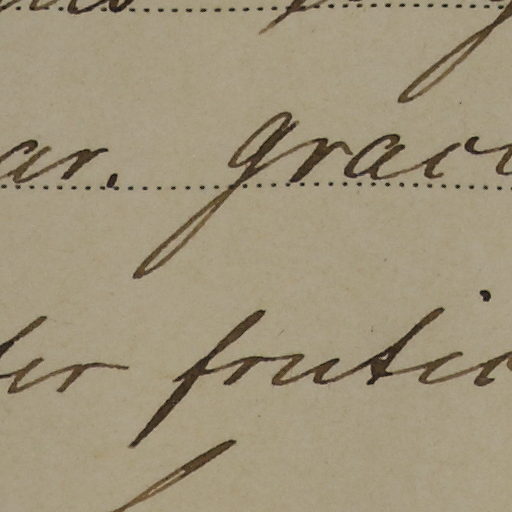 ar. grac
ter frutic